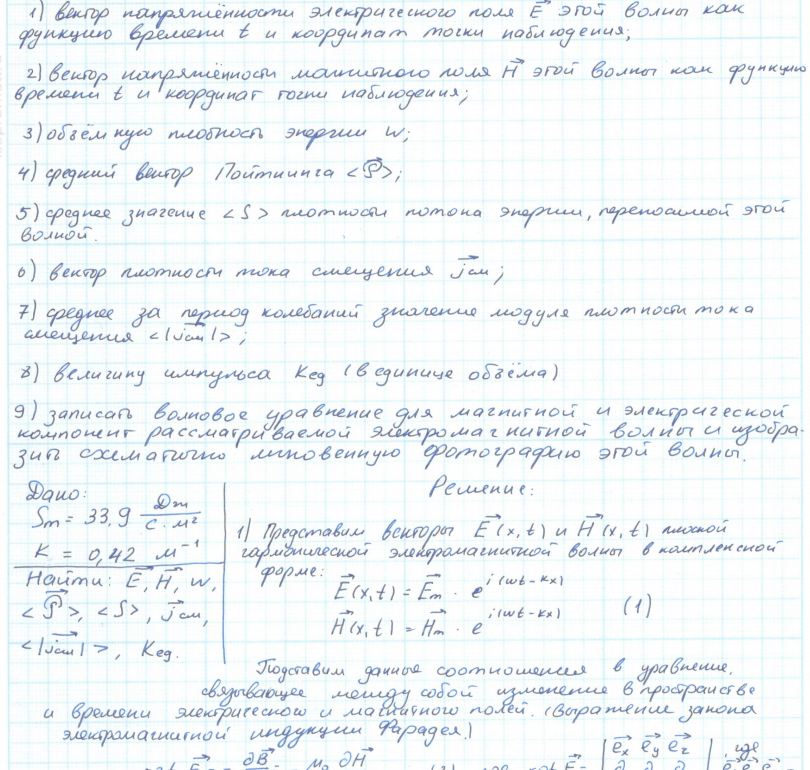 1) вектор напряжённости электрического поля E⃗ этой волны как
функцию времени t и координат точки наблюдения;
2) вектор напряжённости магнитного поля H⃗ этой волны как функцию
времени t и координат точки наблюдения;
3) объёмную плотность энергии w;
4) средний вектор Пойтинга <S⃗>;
5) среднее значение <S> плотности потока энергии, переносимой этой
волной.
6) вектор плотности тока смещения j⃗см;
7) среднее за период колебаний значение модуля плотности тока
смещения <|j⃗см|>;
8) величину импульса Kед (в единице объёма)
9) записать волновое уравнение для магнитной и электрической
компонент рассматриваемой электромагнитной волны и изобра-
зить схематично мгновенную фотографию этой волны.
Дано:
Sm = 33,9 Дж/(с·м²)
K = 0,42 м⁻¹
Найти: E⃗, H⃗, w,
<S⃗>, <S>, j⃗см,
<|j⃗см|>, Kед.
Решение:
1) Представим векторы E⃗(x,t) и H⃗(x,t) плоской
гармонической электромагнитной волны в комплексной
форме:
E⃗(x,t) = E⃗m · e^{i(ωt-kx)}
H⃗(x,t) = H⃗m · e^{i(ωt-kx)} (1)
Подставим данные соотношения в уравнение,
связывающее между собой изменение в пространстве
и времени электрического и магнитного полей. (Выражение закона
электромагнитной индукции Фарадея.)